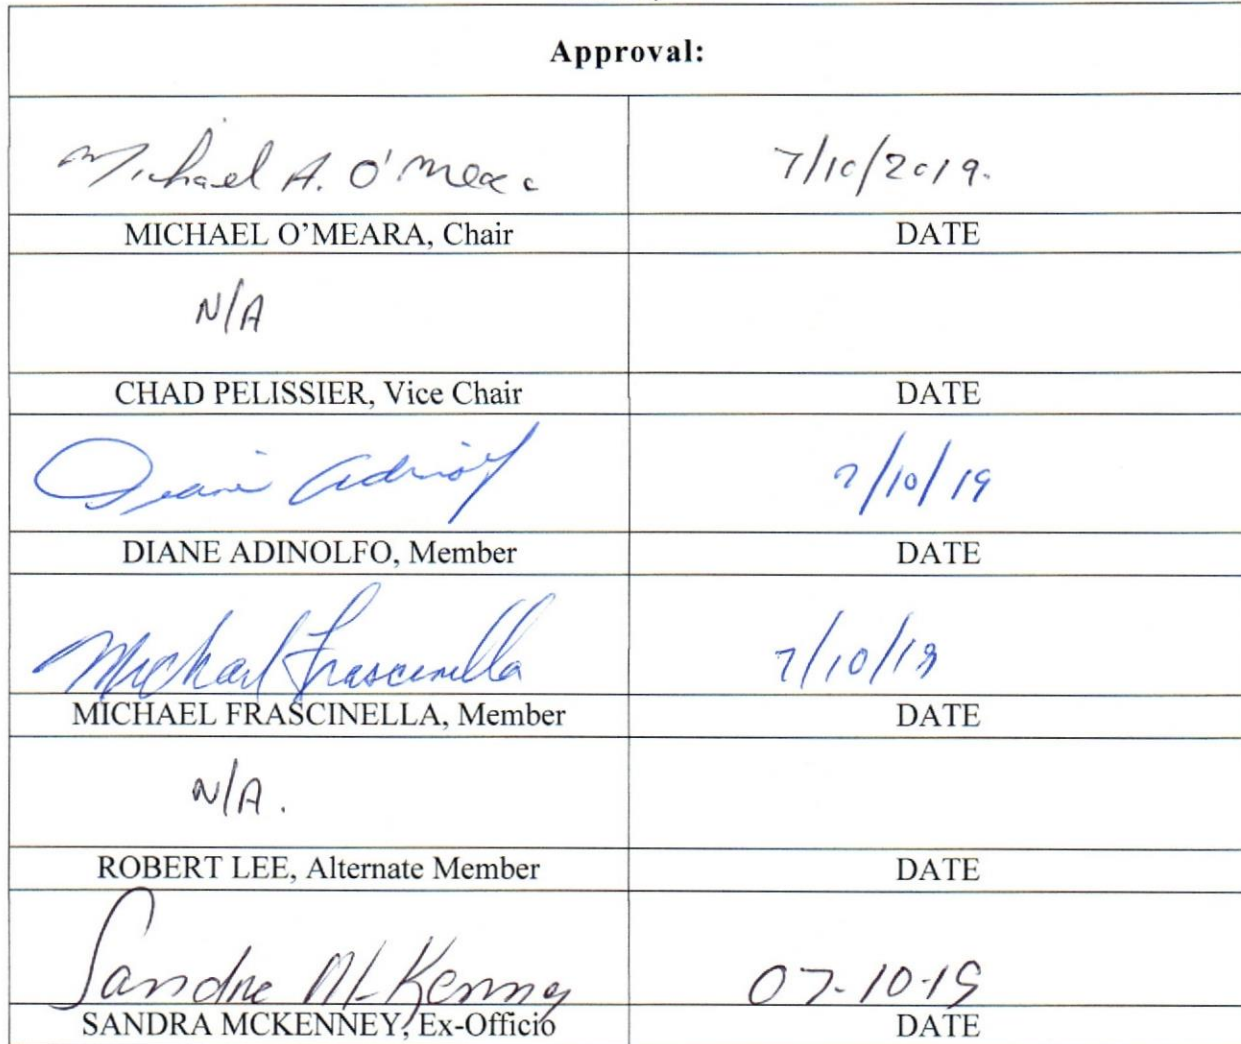 Approval:
Michael A. O'Meara 7/10/2019.
MICHAEL O’MEARA, Chair DATE
N/A
CHAD PELISSIER, Vice Chair DATE
Diane Adinolf 7/10/19
DIANE ADINOLFO, Member DATE
Michael Frascinella 7/10/19
MICHAEL FRASCINELLA, Member DATE
N/A.
ROBERT LEE, Alternate Member DATE
Sandra McKenney 07-10-19
SANDRA MCKENNEY, Ex-Officio DATE